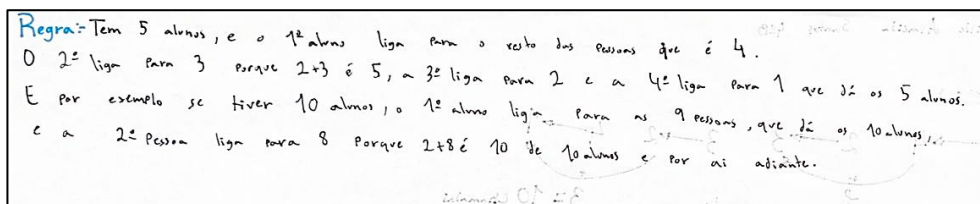 Regra:- Tem 5 alunos, e o 1º aluno liga para o resto das pessoas que é 4.
O 2º liga para 3 porque 2+3 é 5, a 3º liga para 2 e a 4º liga para 1 que dá os 5 alunos.
E por exemplo se tiver 10 alunos, o 1º aluno liga para as 9 pessoas, que dá os 10 alunos,
e a 2º pessoa liga para 8 porque 2+8 é 10 de 10 alunos e por ai adiante.